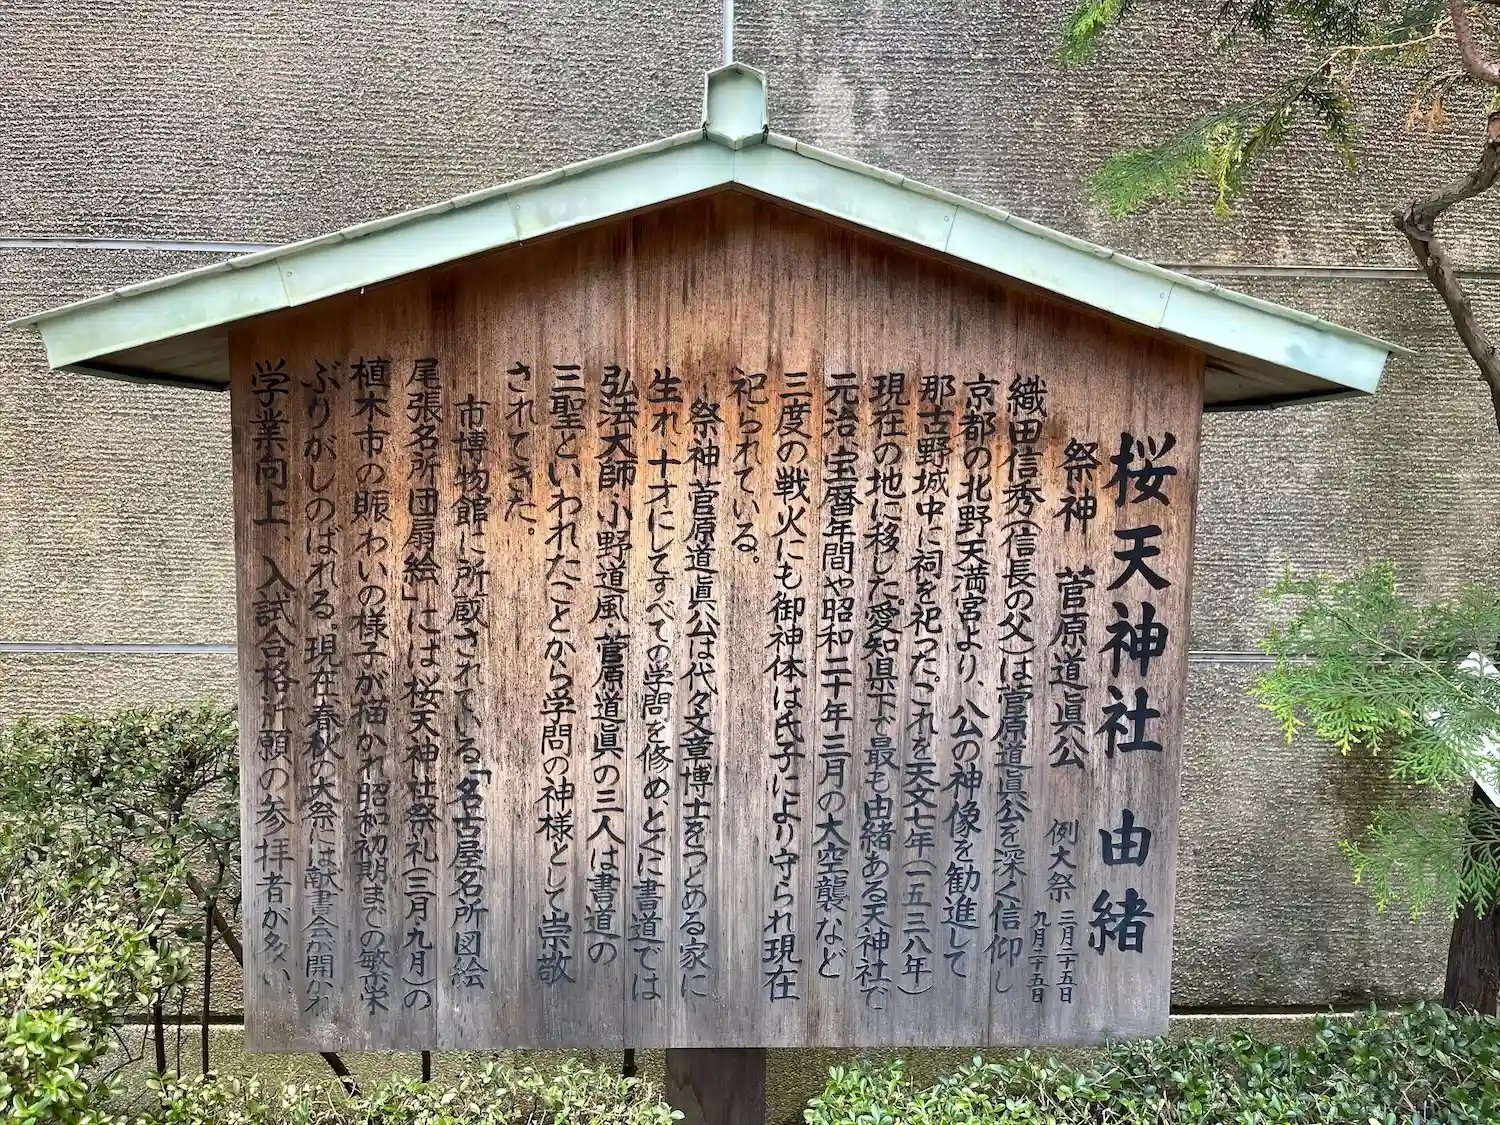 桜天神社 由緒
祭神 菅原道眞公 例大祭 三月二十五日
九月二十五日
織田信秀(信長の父)は菅原道眞公を深く信仰し
京都の北野天満宮より、公の神像を勧進して
那古野城中に祠を祀った。これを天文七年(一五三八年)
現在の地に移した。愛知県下で最も由緒ある天神社で
元治・宝暦年間や昭和二十年三月の大空襲など
三度の戦火にも御神体は氏子により守られ現在
祀られている。
祭神菅原道眞公は代々文章博士をつとめる家に
生れ、十才にしてすべての学問を修め、とくに書道では
弘法大師・小野道風・菅原道眞の三人は書道の
三聖といわれたことから学問の神様として崇敬
されてきた。
市博物館に所蔵されている「名古屋名所図絵
尾張名所団扇絵」には桜天神社祭礼(三月・九月)の
植木市の賑わいの様子が描かれ昭和初期までの繁栄
ぶりがしのばれる。現在春秋の大祭には献書会が開かれ
学業向上、入試合格祈願の参拝者が多い、